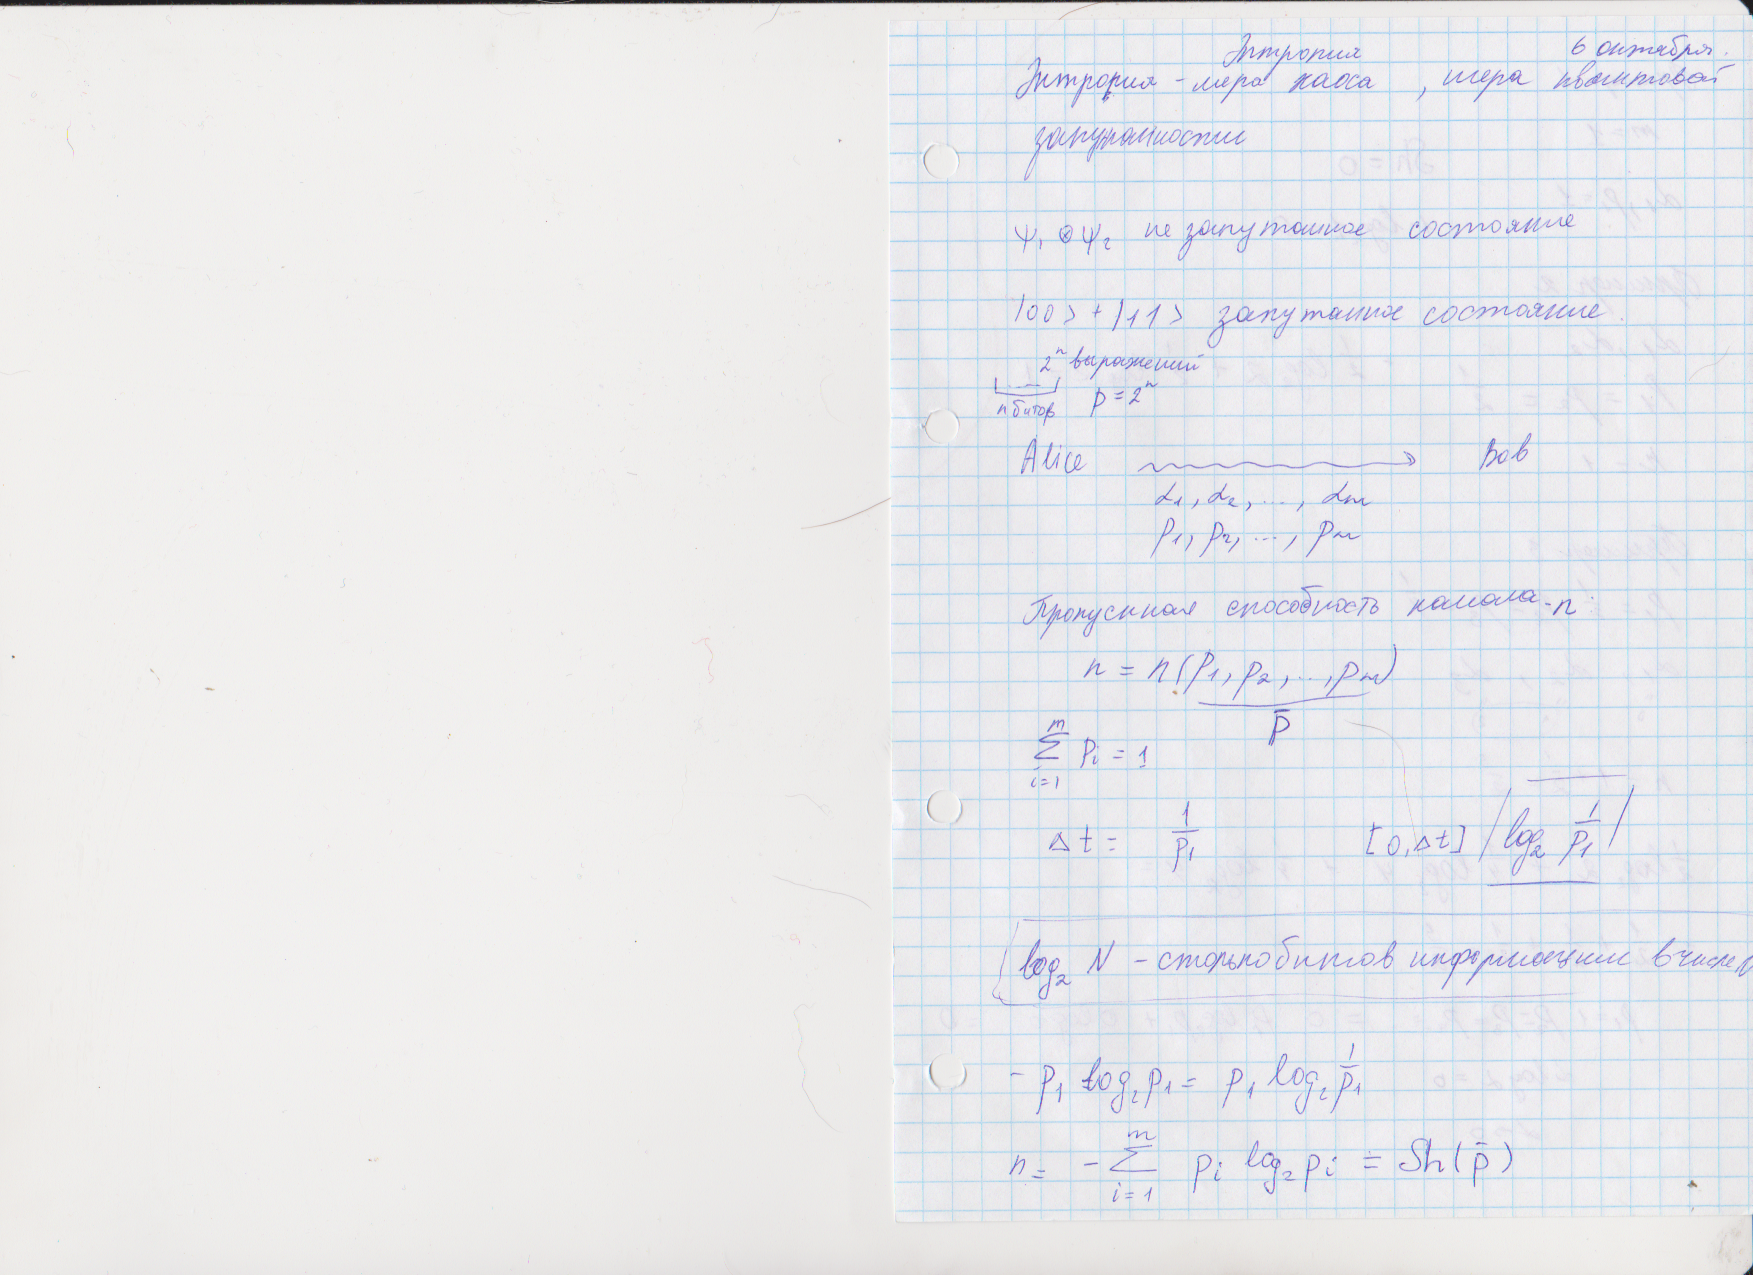 Энтропия 6 октября.
Энтропия - мера хаоса, мера квантовой
запутанности
ψ₁ ⊗ ψ₂ не запутанное состояние
|00> + |11> запутанное состояние.
2ⁿ выражений
n битов p = 2ⁿ
Alice Bob
α₁, α₂, ..., αₘ
p₁, p₂, ..., pₘ
Пропускная способность канала - n:
n = n(p₁, p₂, ..., pₘ)
p̄
∑ᵢ₌₁ᵐ pᵢ = 1
Δt = 1/p₁ [0, Δt] |log₂ 1/p₁|
log₂ N - столько битов информации в числе N
- p₁ log₂ p₁ = p₁ log₂ 1/p₁
n = - ∑ᵢ₌₁ᵐ pᵢ log₂ pᵢ = Sh(p̄)